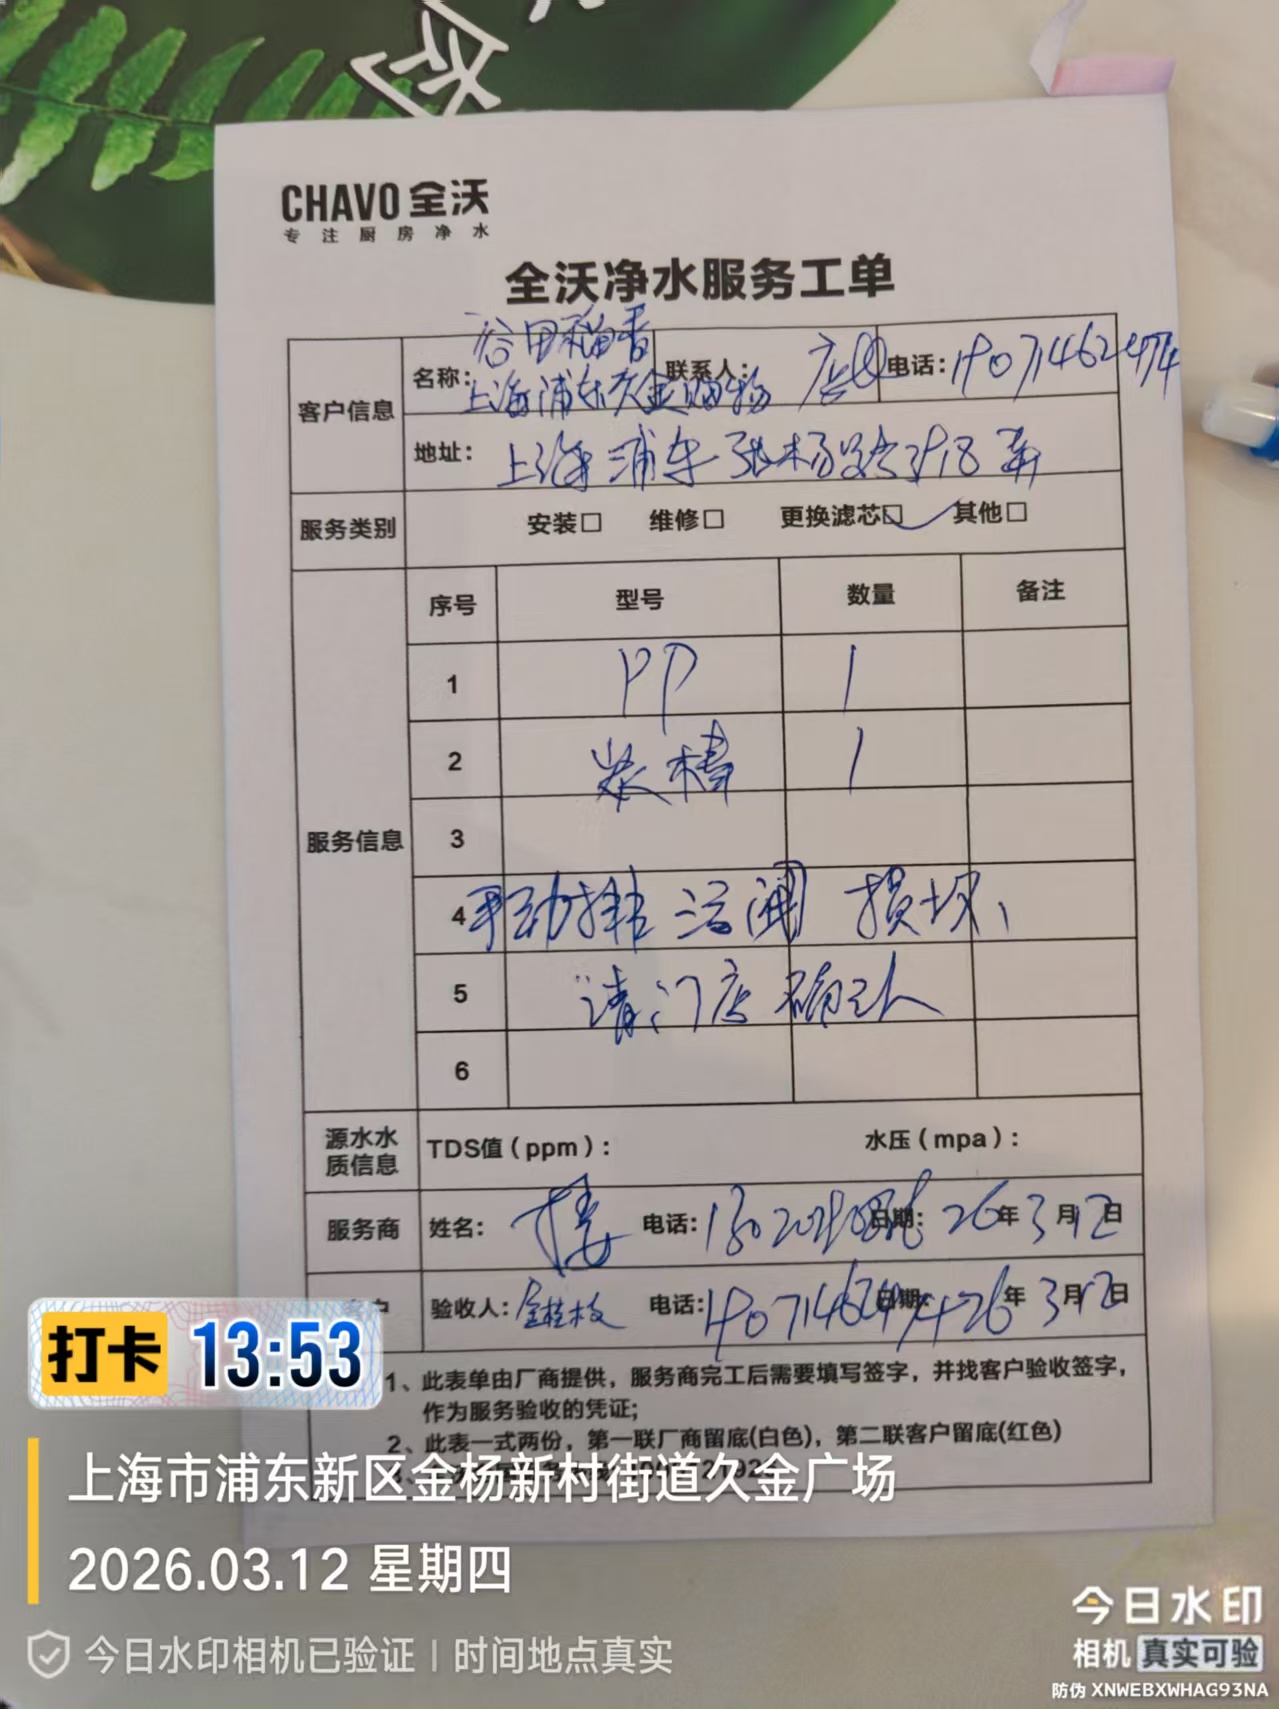 CHAVO 全沃
专注厨房净水
全沃净水服务工单
客户信息
名称: 谷田稻香
上海浦东久金购物
联系人: 店
电话: 19071462474
地址: 上海浦东张杨路3918弄
服务类别 安装□ 维修□ 更换滤芯☑ 其他□
服务信息
序号 型号 数量 备注
1 PP 1
2 炭棒 1
3
4 手动排污阀 损坏、
5 请门店确认
6
源水水质信息 TDS值(ppm): 水压(mpa):
服务商 姓名: 电话: 日期: 26年3月12日
客户 验收人: 金桂枝 电话: 19071462474 日期: 26年3月12日
1、此表单由厂商提供,服务商完工后需要填写签字,并找客户验收签字,
作为服务验收的凭证;
2、此表一式两份,第一联厂商留底(白色),第二联客户留底(红色)
打卡 13:53
上海市浦东新区金杨新村街道久金广场
2026.03.12 星期四
今日水印相机已验证 | 时间地点真实
今日水印
相机 真实可验
防伪 XNWEBXWHAG93NA